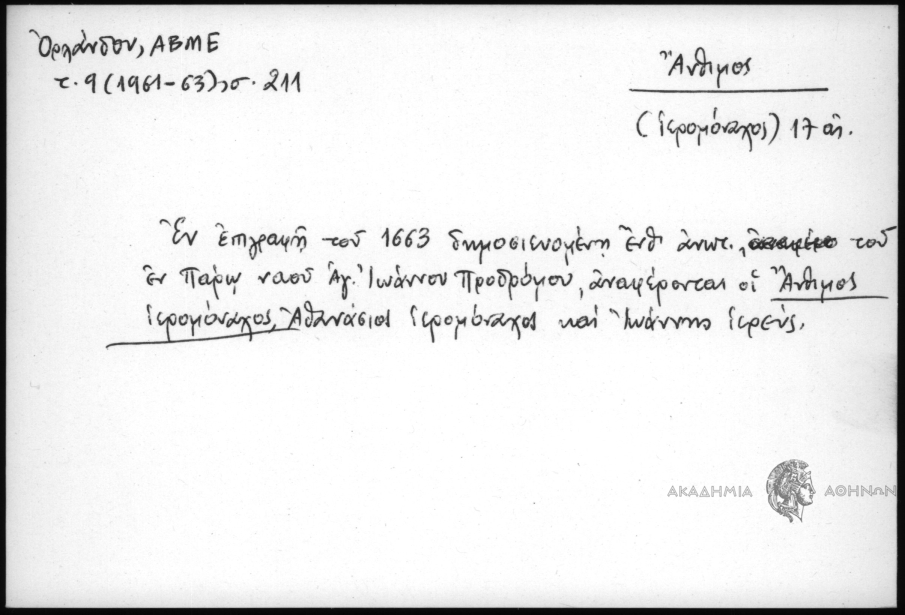 Ὀρλάνδου, ΑΒΜΕ
τ. 9 (1961-63), σ. 211
Ἄνθιμος
(ἱερομόναχος) 17 αἰ.
Ἐν ἐπιγραφῇ τοῦ 1663 δημοσιευομένῃ ἔνθ' ἀνωτ. τοῦ
ἐν Πάρῳ ναοῦ Ἁγ. Ἰωάννου Προδρόμου, ἀναφέρονται οἱ Ἄνθιμος
ἱερομόναχος, Ἀθανάσιος ἱερομόναχος καί Ἰωάννης ἱερεύς.
ΑΚΑΔΗΜΙΑ ΑΘΗΝΩΝ